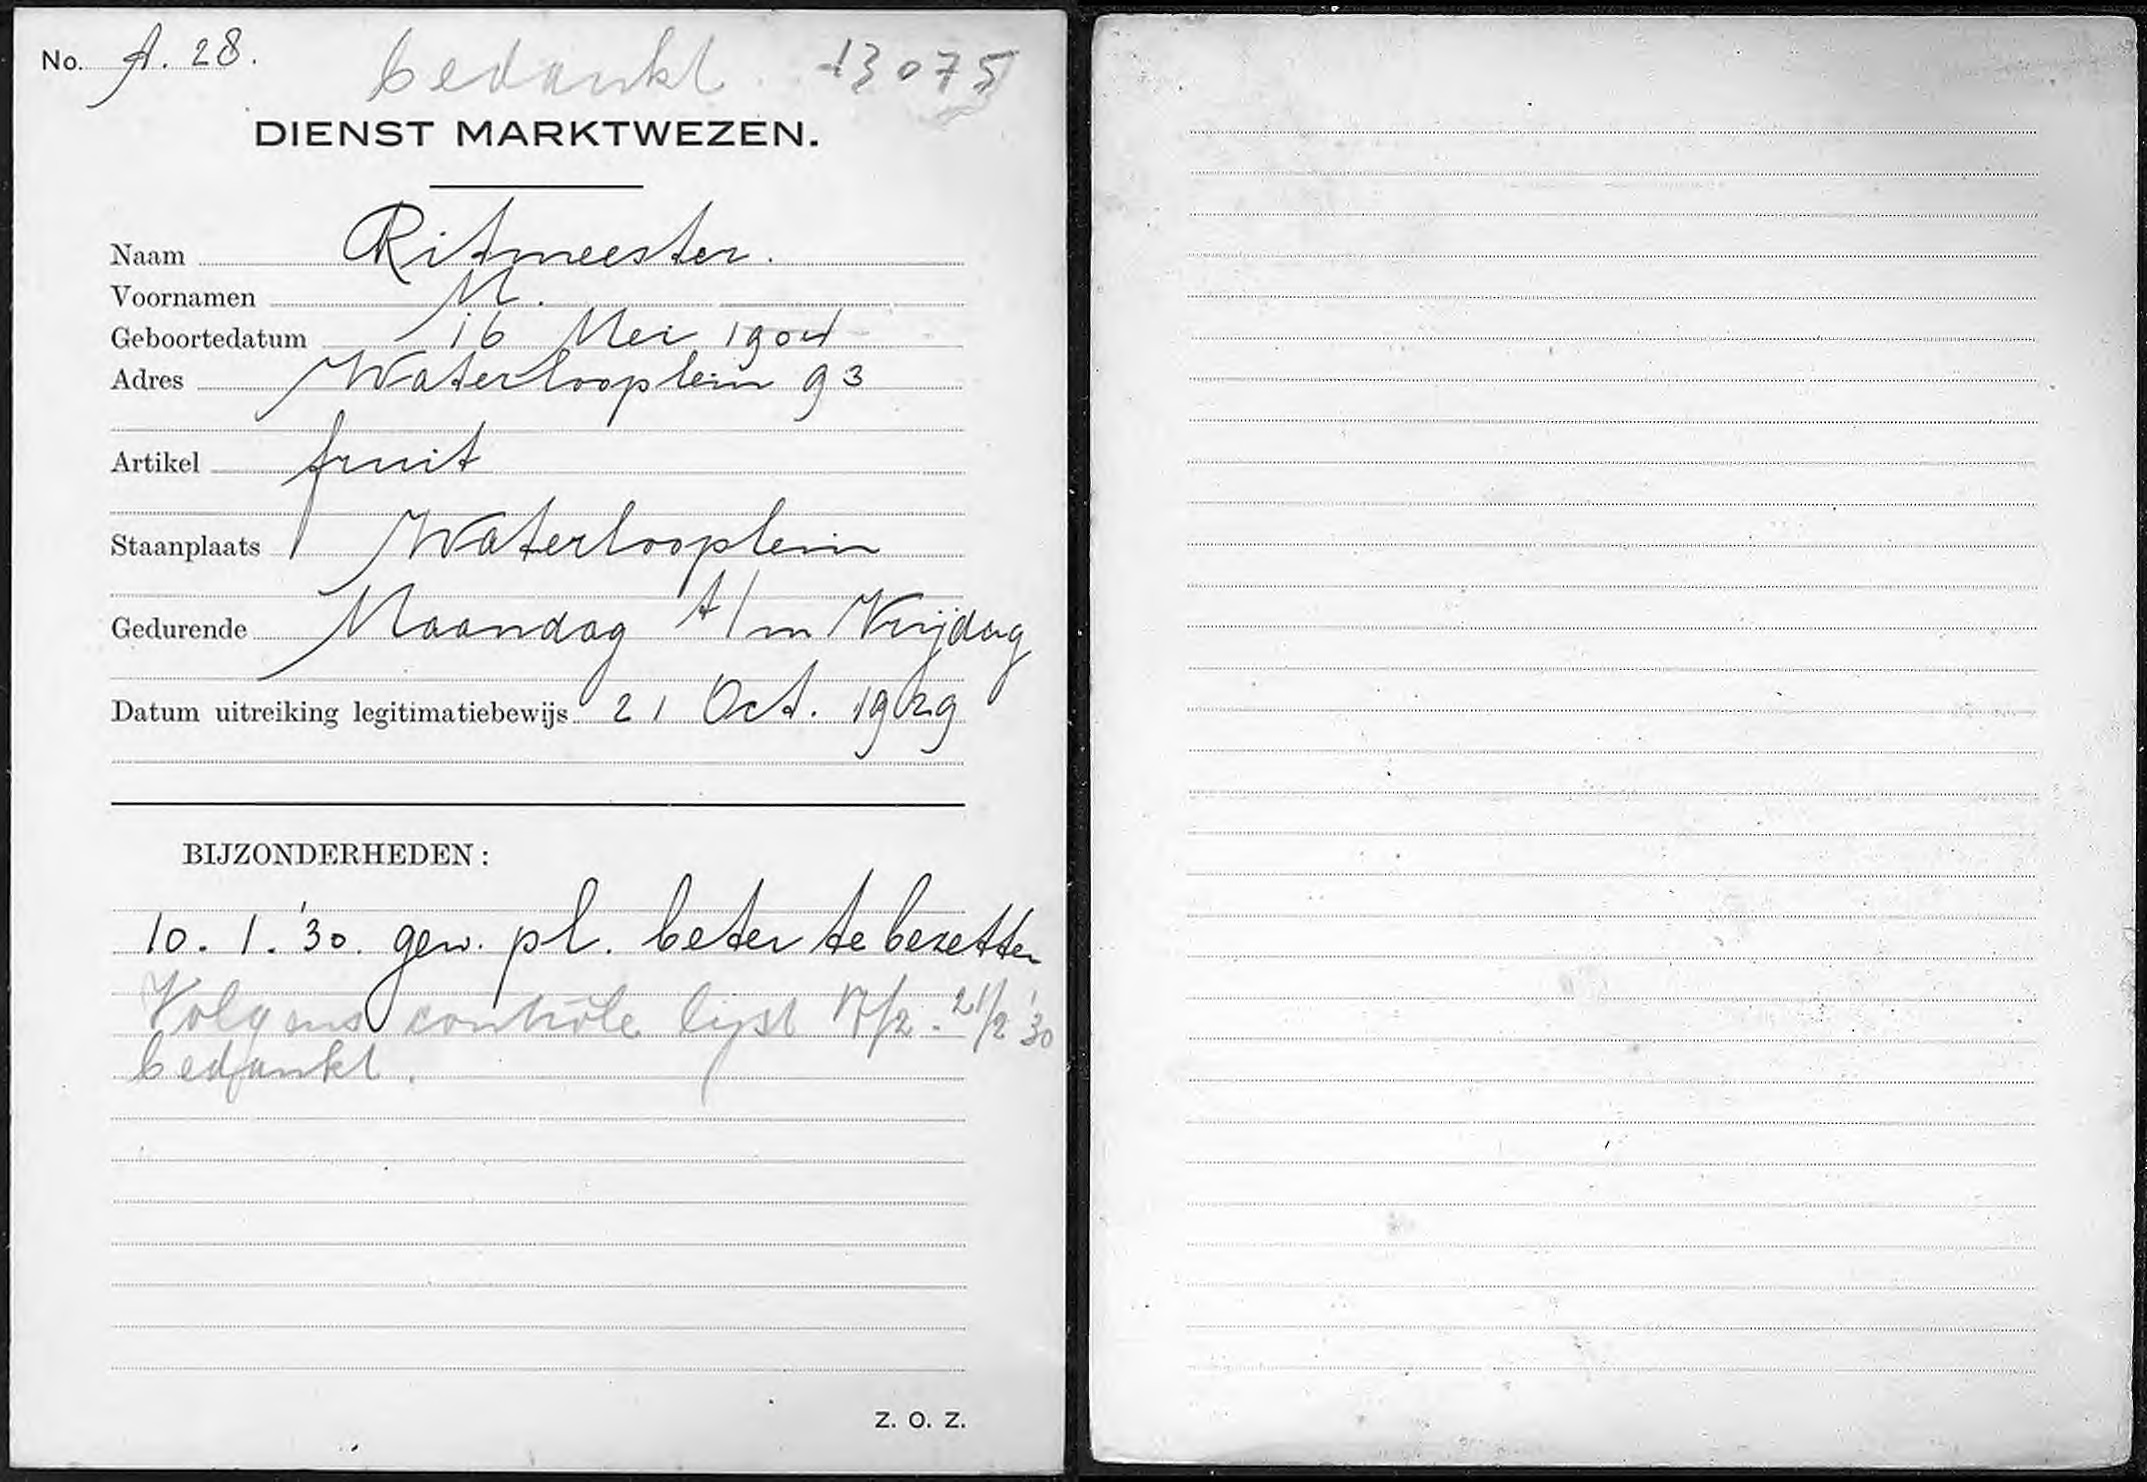 No. A. 28. bedankt. 13075
DIENST MARKTWEZEN.
Naam Ritmeester.
Voornamen M.
Geboortedatum 16 Mei 1904
Adres Waterlooplein 93
Artikel fruit
Staanplaats Waterlooplein
Gedurende Maandag t/m Vrijdag
Datum uitreiking legitimatiebewijs 21 Oct. 1929
BIJZONDERHEDEN:
10. 1. '30. gew. pl. beter te bezetten
Volgens contrôle lijst 17/2 - 21/2 '30
bedankt.
Z. O. Z.